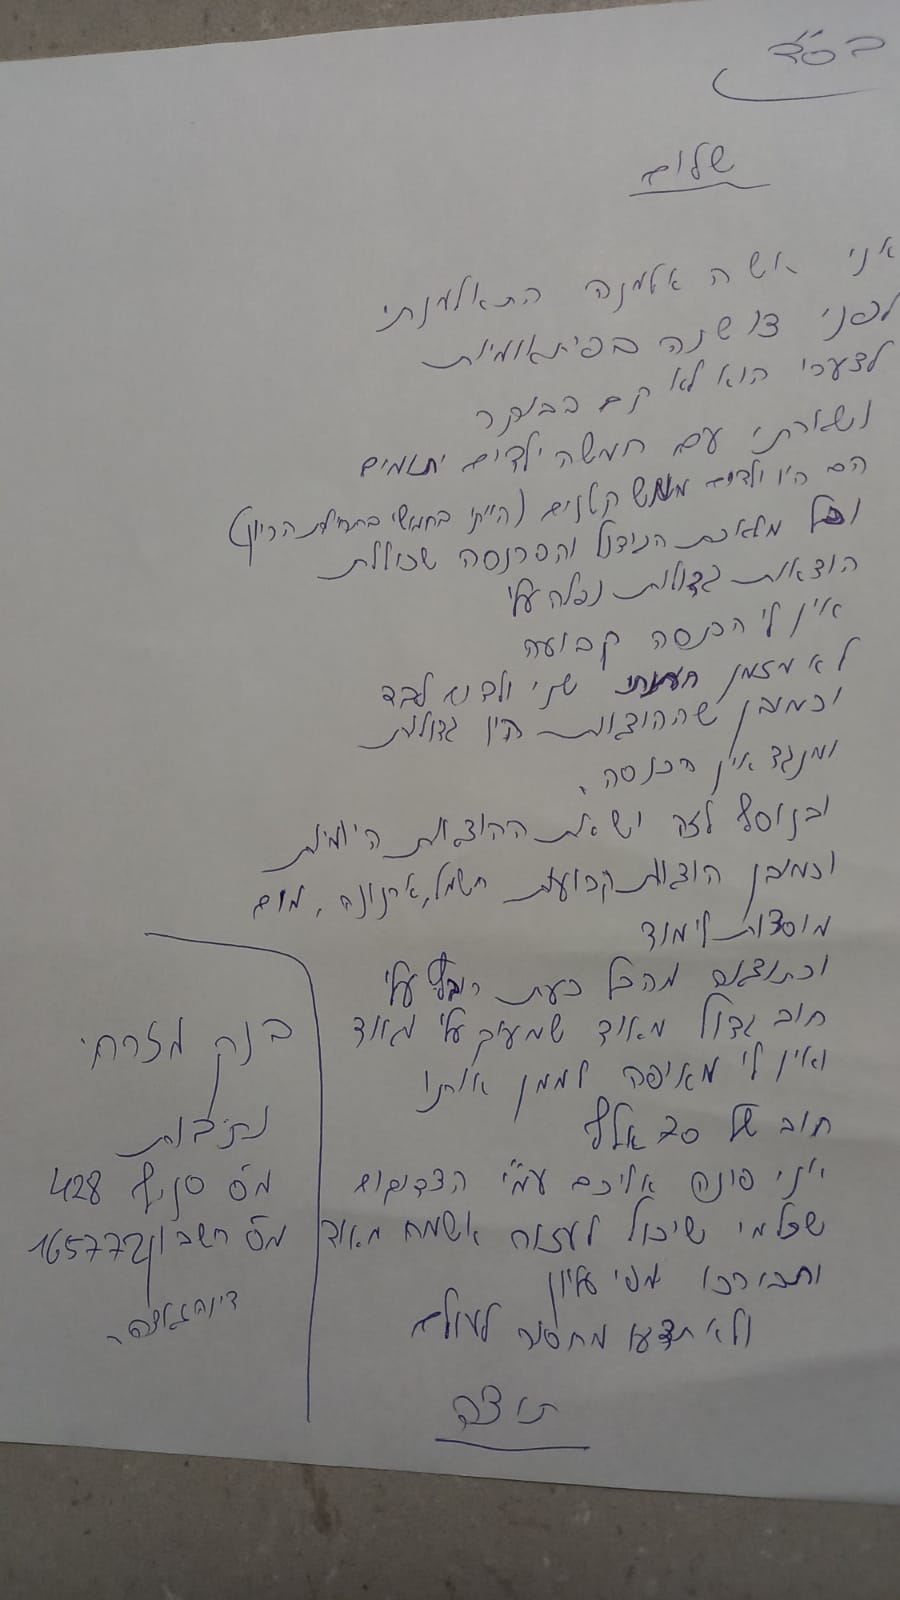 בס"ד
שלום
אני אשה אלמנה התאלמנתי
לפני שנה בפיתאומיות
לצערי הוא לא קם בבוקר
ונשארתי עם חמשה ילדים יתומים
הם היו ילדים ממש קטנים (הייתי בחמישי בתחילת הריון)
וכל מלאכת הגידול והפרנסה שכוללת
הוצאות גדולות נפלה עלי
אין לי הכנסה קבועה
לא מזמן חתנתי שני ילדים לבד
וכמובן שההוצאות היו גדולות
ומנגד אין הכנסה.
ובנוסף לזה ישנם ההוצאות היומיות
וכמובן הוצאות קבועות חשמל, ארנונה, מים
מוסדות לימוד
וכתוצאה מהכל כעת רובץ עלי
חוב גדול מאוד שמעיק עלי מאוד
ואין לי מאיפה לממן אותו
חוב של אלף
אני פונה אליכם עמ"י הצדיקים
שכל מי שיכול לעזור אשמח מאוד
ותבורכו מפי עליון
ולא תדעו מחסור לעולם
תודה
בנק מזרחי
נתיבות
מס סניף 428
מס חשבון 165772